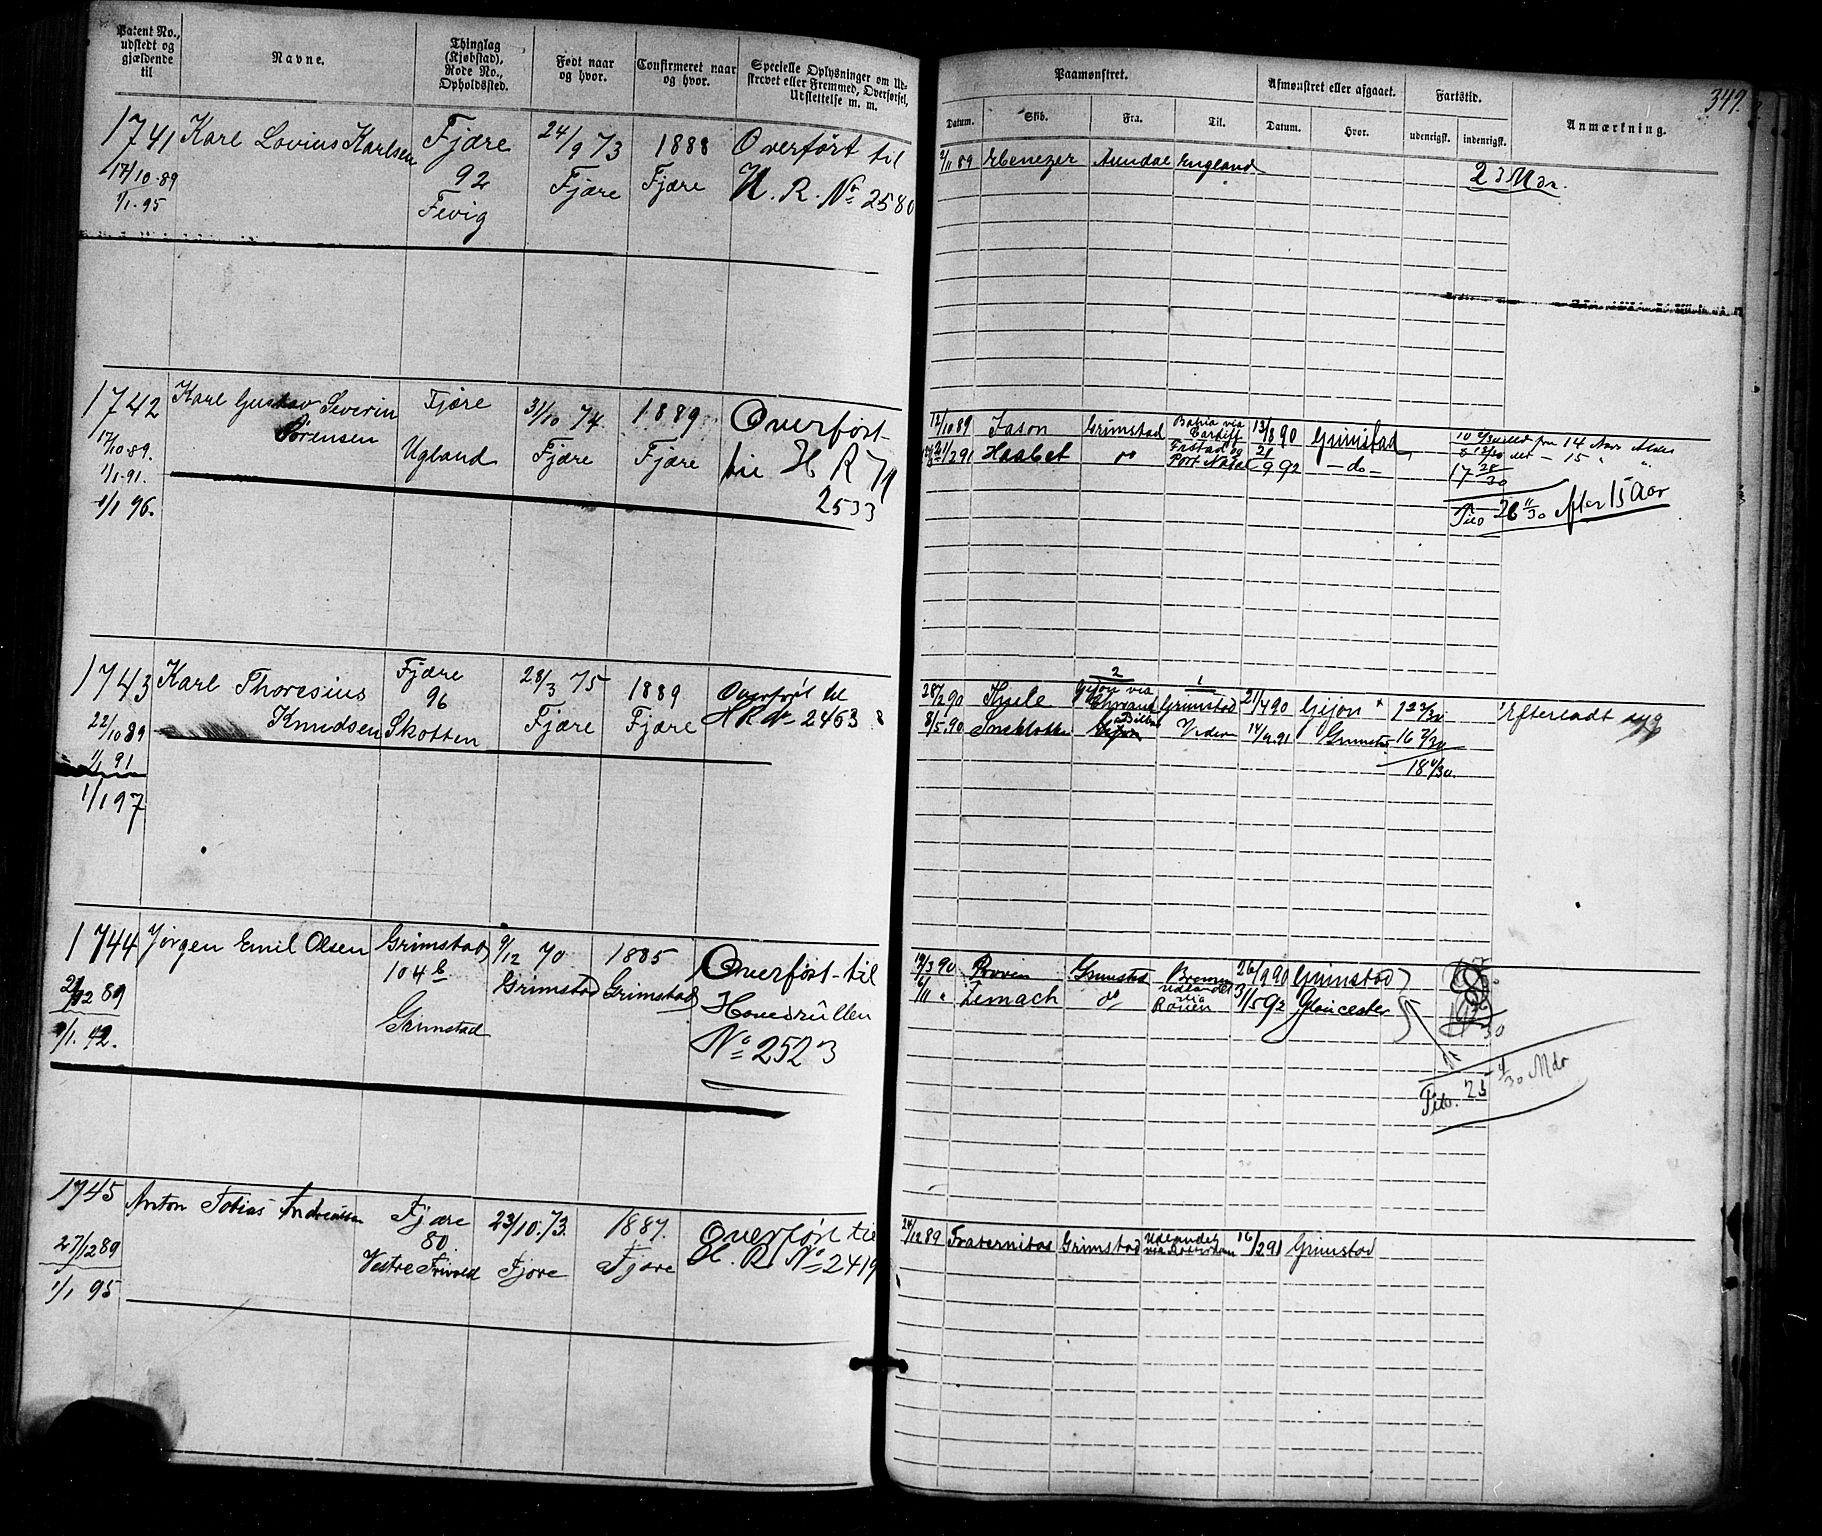 Patent No., udstedt og gjældende til
Navne.
Thinglag (Kjøbstad), Rode No., Opholdssted.
Født naar og hvor.
Confirmeret naar og hvor.
Specielle Oplysninger om Udskrevet eller Fremmed, Overførsel, Udslettelse m. m.
Paamønstret.
Afmønstret eller afgaaet.
Fartstid.
Anmærkning.
349.
Datum.
Skib.
Fra.
Til.
Datum.
Hvor.
udenrigsk.
indenrigsk.
1741 Karl Lovius Karlsen Fjære 24/9 73 1888 Overført til
17/10-89 92 Fjære Fjære H. R. No 2580
1/1-95 Fevig
2/11 89 Ebenezer Arendal England
23 Mdr.
1742 Karl Gustav Severin Fjære 31/10 74. 1889 Overført
Sørensen
17/10 89. Ugland Fjære Fjære til H R N
1/1-91. 2533
1/1 96.
17/10 89 Jason Grimstad Bahia via Cardiff 13/8 90 Grimstad
Haabet do Port Natal 9 92 - do -
17 28/30
Tilo 26 11/30 efter 15 Aar
1743 Karl Thoresius Fjære 28/3 75 1889 Overført til
Knudsen 96 Fjære Fjære H R No 2463
22/10 89 Skotten
1/1 91
1/1 97
2 1
28/2 90 Thisle Gijon via Grimstad 21/7 90 Gijon
8/5.90 Sneklokke 14/4.91 Grimstad 16 2/30
18 4/30.
Efterladt syg
1744 Jørgen Emil Olsen Grimstad 9/12 70 1885 Overført til
104 b Grimstad Grimstad Hovedrullen
12 89 Grimstad No 2523
1/1. 92.
3 90 Grimstad Bremen 26/9 90 Grimstad
6/11 " Zemach do udlandet via Rouen 31/5 92 Gloucester
Tilo. 25 4/30 Mdr
1745 Anton Tobias Andreassen Fjære 23/10.73. 1887. Overført til
80. H. R. No 2419
27/12 89 Vestre Frivold Fjære Fjære
1/1 95
24/12 89 Fraternitas Grimstad Udlandet via Rotterdam 16/2 91 Grimstad